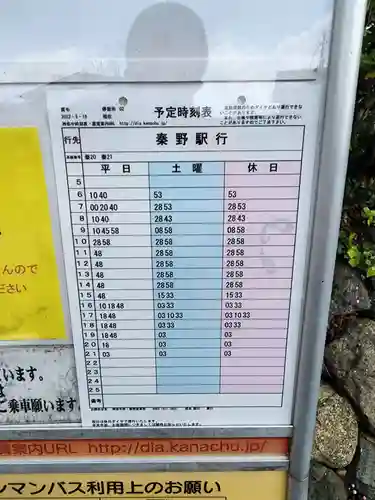 予定時刻表
行先
秦野駅行
秦20 秦21
平日 土曜 休日
5
6 10 40 53 53
7 00 20 40 28 53 28 53
8 10 40 28 43 28 43
9 10 45 58 08 58 08 58
10 28 58 28 58 28 58
11 48 28 58 28 58
12 48 28 58 28 58
13 48 28 58 28 58
14 48 28 58 28 58
15 48 15 33 15 33
16 10 18 48 03 33 03 33
17 18 48 03 10 33 03 10 33
18 18 48 03 33 03 33
19 18 48 03 03
20 18 03 03
21 03 03 03
22
23
24
25
んので
ださい
います。
ご乗車願います
案内URL http://dia.kanachu.jp/
ンマンバス利用上のお願い